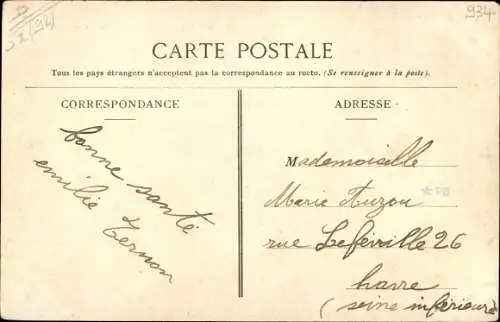 934
CARTE POSTALE
Tous les pays étrangers n'acceptent pas la correspondance au recto. (Se renseigner à la poste).
CORRESPONDANCE
ADRESSE
bonne santé
emilie Ternon
Mademoiselle
Marie
rue 26
havre
(seine inférieure)